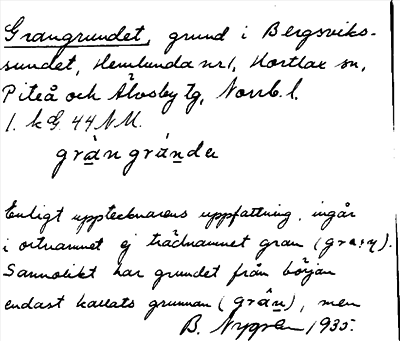 Grangrundet, grund i Bergsviks-
sundet, Hemlunda nr 1, Hortlax sn,
Piteå och Älvsby tg, Norrb. l.
1. k G. 44 N.M.
gràn gránde
Enligt upptecknarens uppfattning, ingår
i ortnamnet ej trädnamnet gran
Sannolikt har grundet från början
endast kallats grunnan (grân), men
B. Nygren 1935.